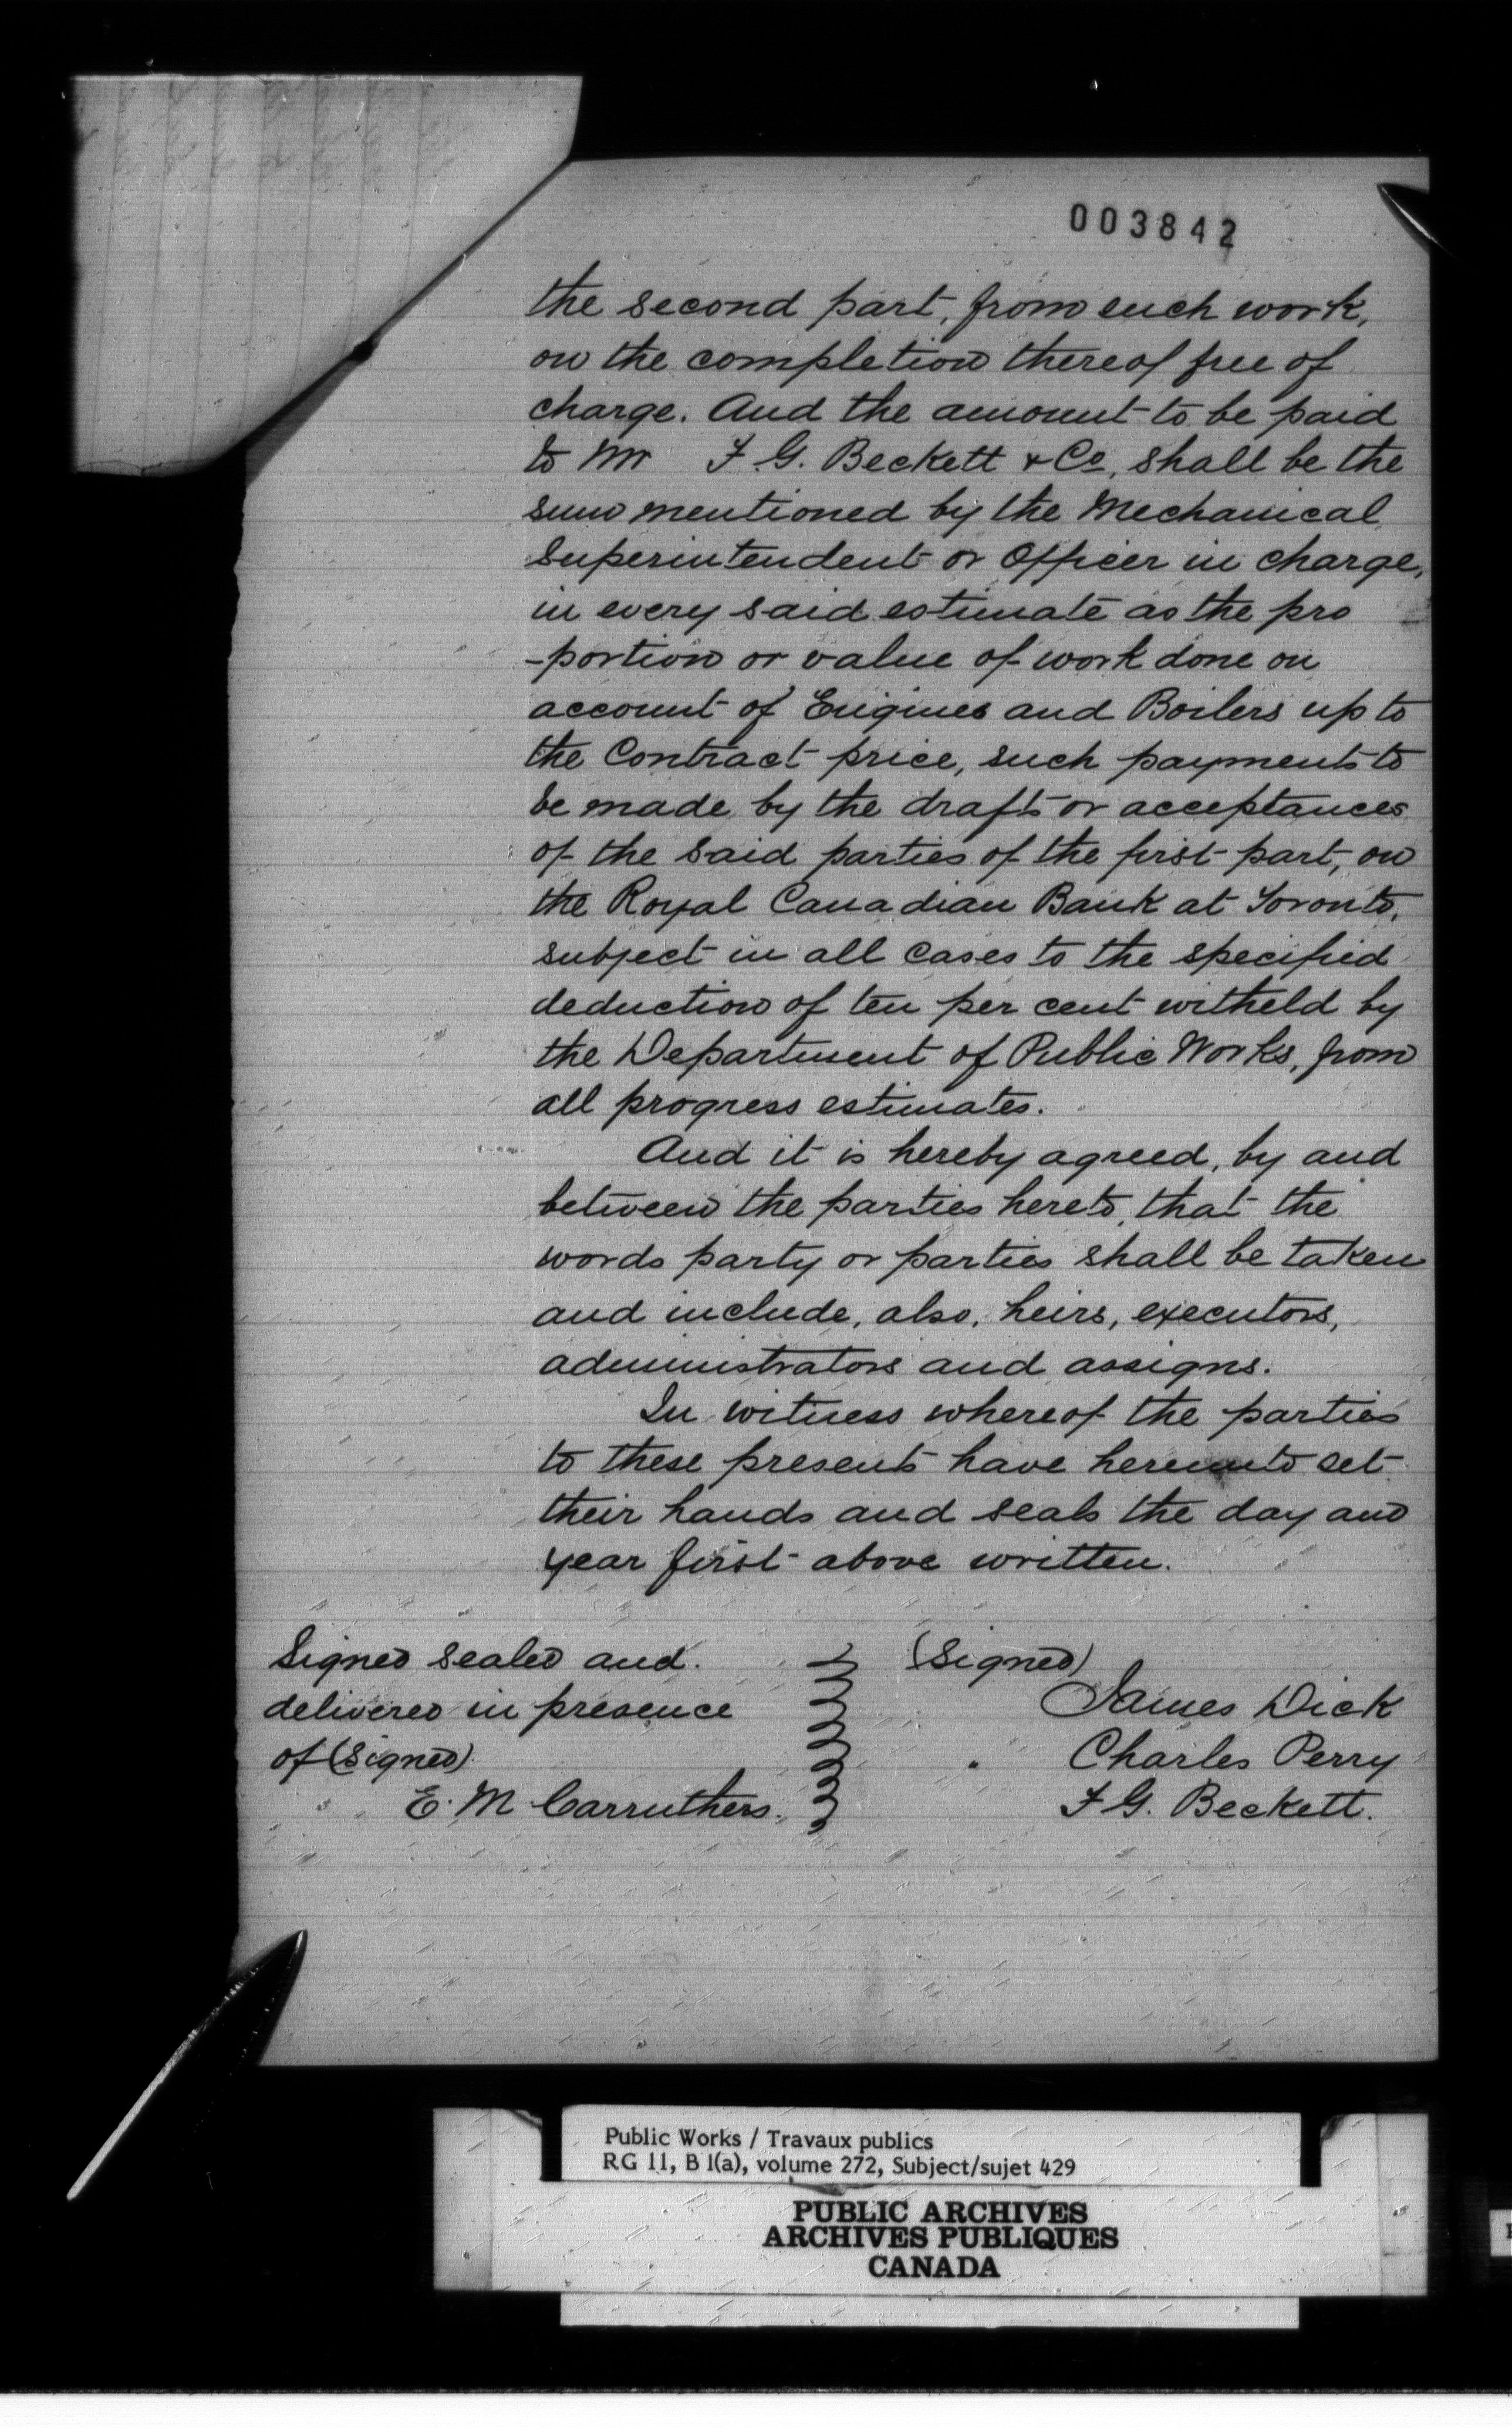 003842
the second part, from such work,
on the completion thereof free of
charge. And the amount to be paid
to Mr F. G. Beckett & Co, shall be the
sum mentioned by the Mechanical
Superintendent or Officer in charge,
in every said estimate as the pro
-portion or value of work done on
account of Engines and Boilers up to
the Contract price, such payments to
be made by the drafts or acceptances
of the said parties of the first part, on
the Royal Canadian Bank at Toronto,
subject in all cases to the specified
deduction of ten per cent witheld by
the Department of Public Works, from
all progress estimates.
And it is hereby agreed, by and
between the parties hereto, that the
words party or parties shall be taken
and include, also, heirs, executors,
administrators and assigns.
In witness whereof the parties
to these presents have hereunto set
their hands and seals the day and
year first above written.
Signed sealed and (Signed)
delivered in presence James Dick
of (Signed) " Charles Perry
E. M Carruthers. F G. Beckett.
Public Works / Travaux publics
RG 11, B 1(a), volume 272, Subject/sujet 429
PUBLIC ARCHIVES
ARCHIVES PUBLIQUES
CANADA